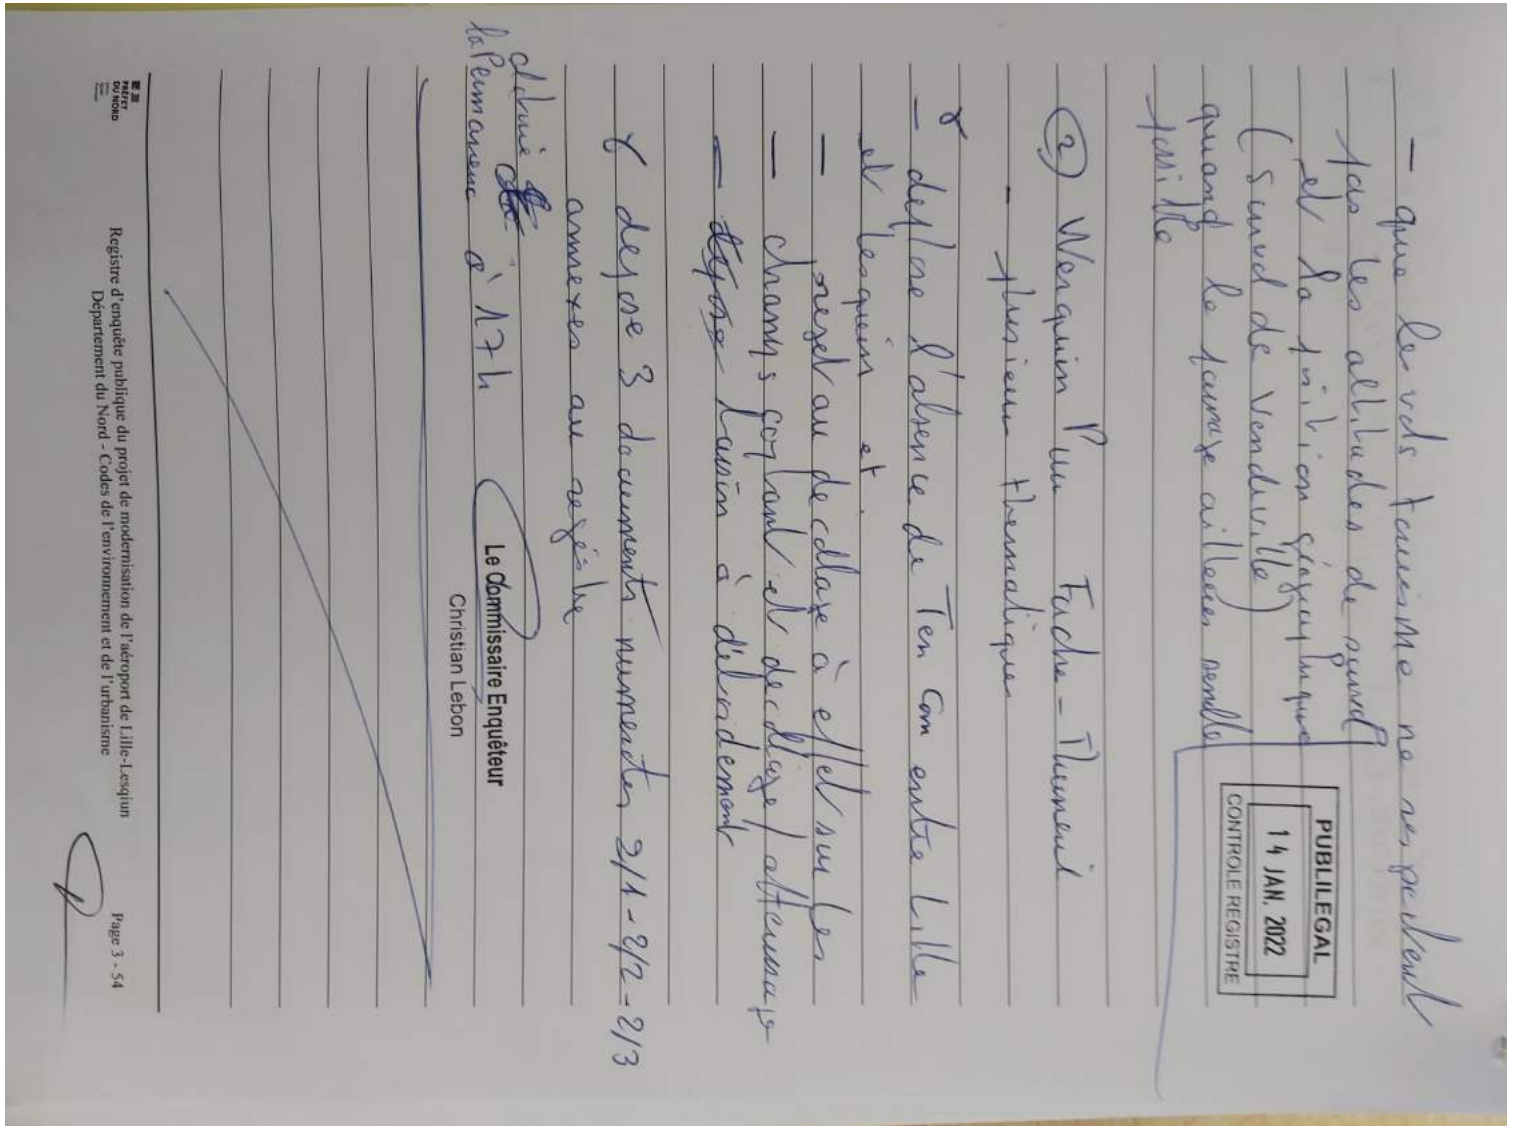 - que les vols tourisme ne respectent
pas les altitudes de survol
et la position géographique
(survol de Vendeville)
quand le passage ailleurs semble
possible
PUBLILEGAL
14 JAN. 2022
CONTROLE REGISTRE
② Werquin Faches-Thumenil
- plusieurs thématiques
- deplore l'absence de Ter Com entre Lille
et Lesquin et
- projet au decollage à effet sur les
- champs captant et decollage/atterrissage
- bassin à débordement
depose 3 documents numerotés 2/1-2/2-2/3
annexes au registre
la Permanence à 17h
Le Commissaire Enquêteur
Christian Lebon
PRÉFET
DU NORD
Registre d'enquête publique du projet de modernisation de l'aéroport de Lille-Lesqiun
Département du Nord - Codes de l'environnement et de l'urbanisme
Page 3 - 54